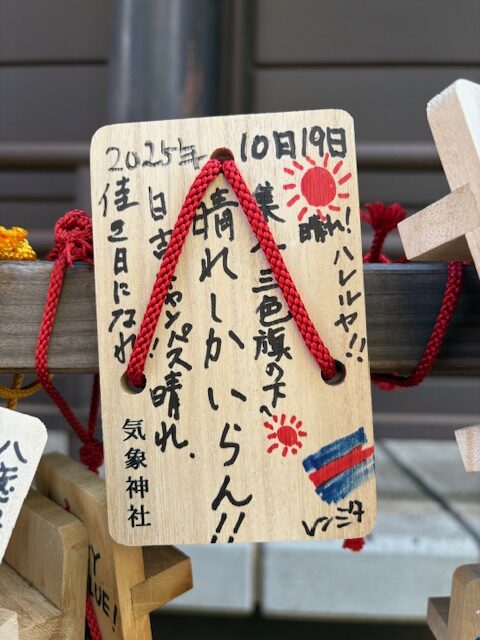 2025年 10月19日
晴れ!ハレルヤ!!
集へ三色旗の下へ
晴れしかいらん!!
日吉キャンパス晴れ、
佳き日になれ!!
気象神社